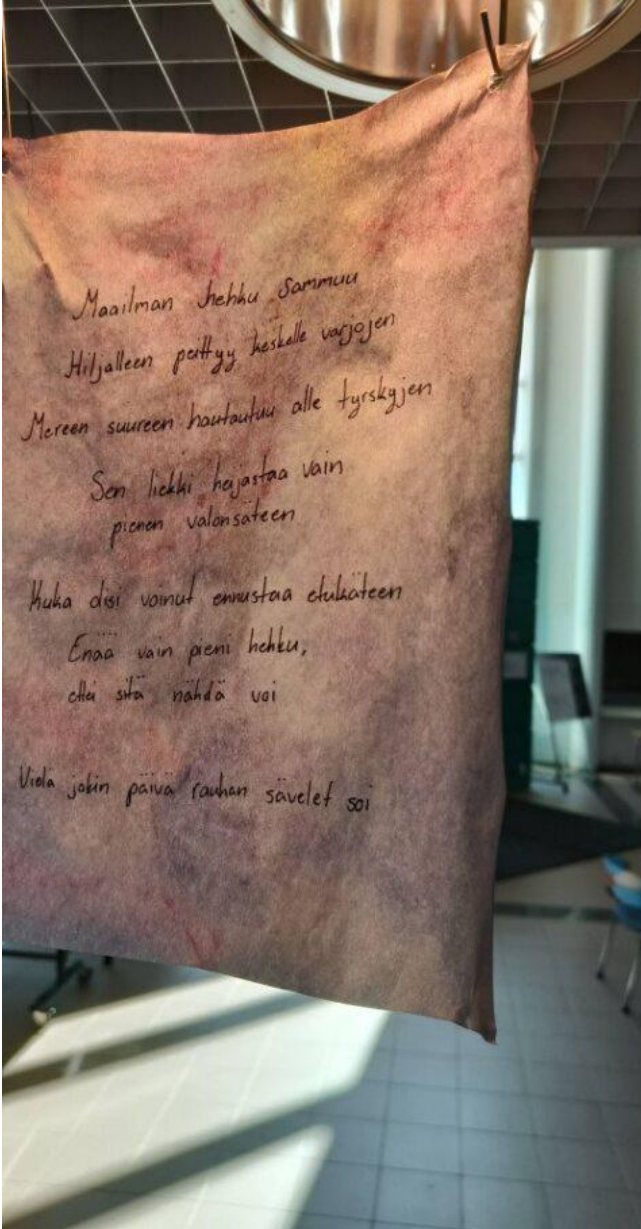 Maailman hehku sammuu
Hiljalleen peittyy keskelle varjojen
Mereen suureen hautautuu alle tyrskyjen
Sen liekki heijastaa vain
pienen valonsäteen
Kuka olisi voinut ennustaa etukäteen
Enää vain pieni hehku,
ettei sitä nähdä voi
Vielä jokin päivä rauhan sävelet soi